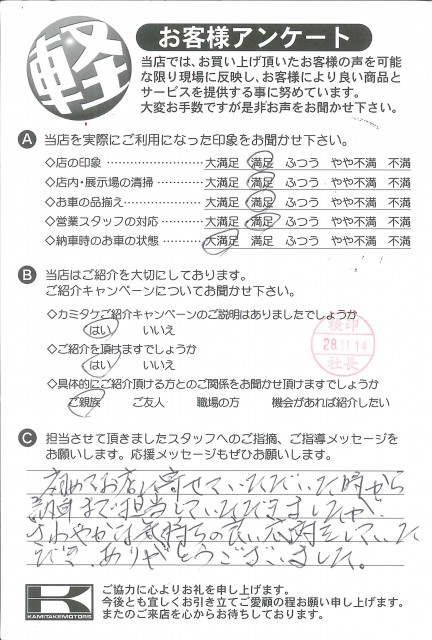 軽
お客様アンケート
当店では、お買い上げ頂いたお客様の声を可能
な限り現場に反映し、お客様により良い商品と
サービスを提供する事に努めています。
大変お手数ですが是非お声をお聞かせ下さい。
A 当店を実際にご利用になった印象をお聞かせ下さい。
◇店の印象 大満足 満足 ふつう やや不満 不満
◇店内・展示場の清掃 大満足 満足 ふつう やや不満 不満
◇お車の品揃え 大満足 満足 ふつう やや不満 不満
◇営業スタッフの対応 大満足 満足 ふつう やや不満 不満
◇納車時のお車の状態 大満足 満足 ふつう やや不満 不満
B 当店はご紹介を大切にしております。
ご紹介キャンペーンについてお聞かせ下さい。
◇カミタケご紹介キャンペーンのご説明はありましたでしょうか
はい いいえ
◇ご紹介を頂けますでしょうか
はい いいえ
検印
28.11.14
社長
◇具体的にご紹介頂ける方とのご関係をお聞かせ頂けますでしょうか
ご親族 ご友人 職場の方 機会があれば紹介したい
C 担当させて頂きましたスタッフへのご指摘、ご指導メッセージを
お願いします。応援メッセージもぜひお願いします。
初めてお店に寄せていただいた時から
納車まで担当していただきましたが、
さわやかな気持ちの良い応対をしていた
だき、ありがとうございました。
K
KAMITAKEMOTORS
ご協力に心よりお礼を申し上げます。
今後とも宜しくお引き立てご愛顧の程お願い申し上げます。
またのご来店を心からお待ちしております。